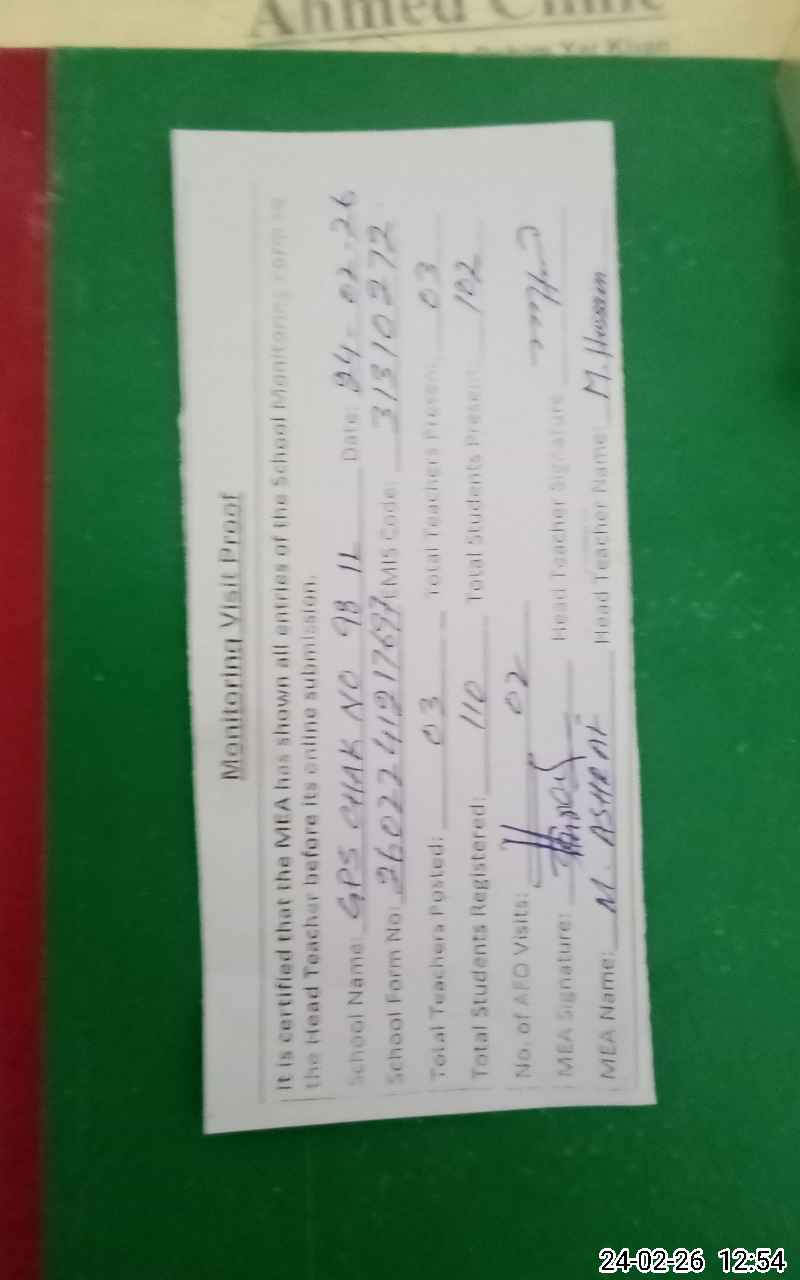 Ahmed Clinic
Monitoring Visit Proof
It is certified that the MEA has shown all entries of the School Monitoring Form to
the Head Teacher before its online submission.
School Name: GPS CHAK NO 98 1L Date: 24-02-26
School Form No: 260224121217697 EMIS Code: 31310272
Total Teachers Posted: 03 Total Teachers Present: 03
Total Students Registered: 110 Total Students Present: 102
No. of AEO Visits: 02
MEA Signature: Head Teacher Signature
MEA Name: M. ASHRAF Head Teacher Name: M. Hussain
24-02-26 12:54